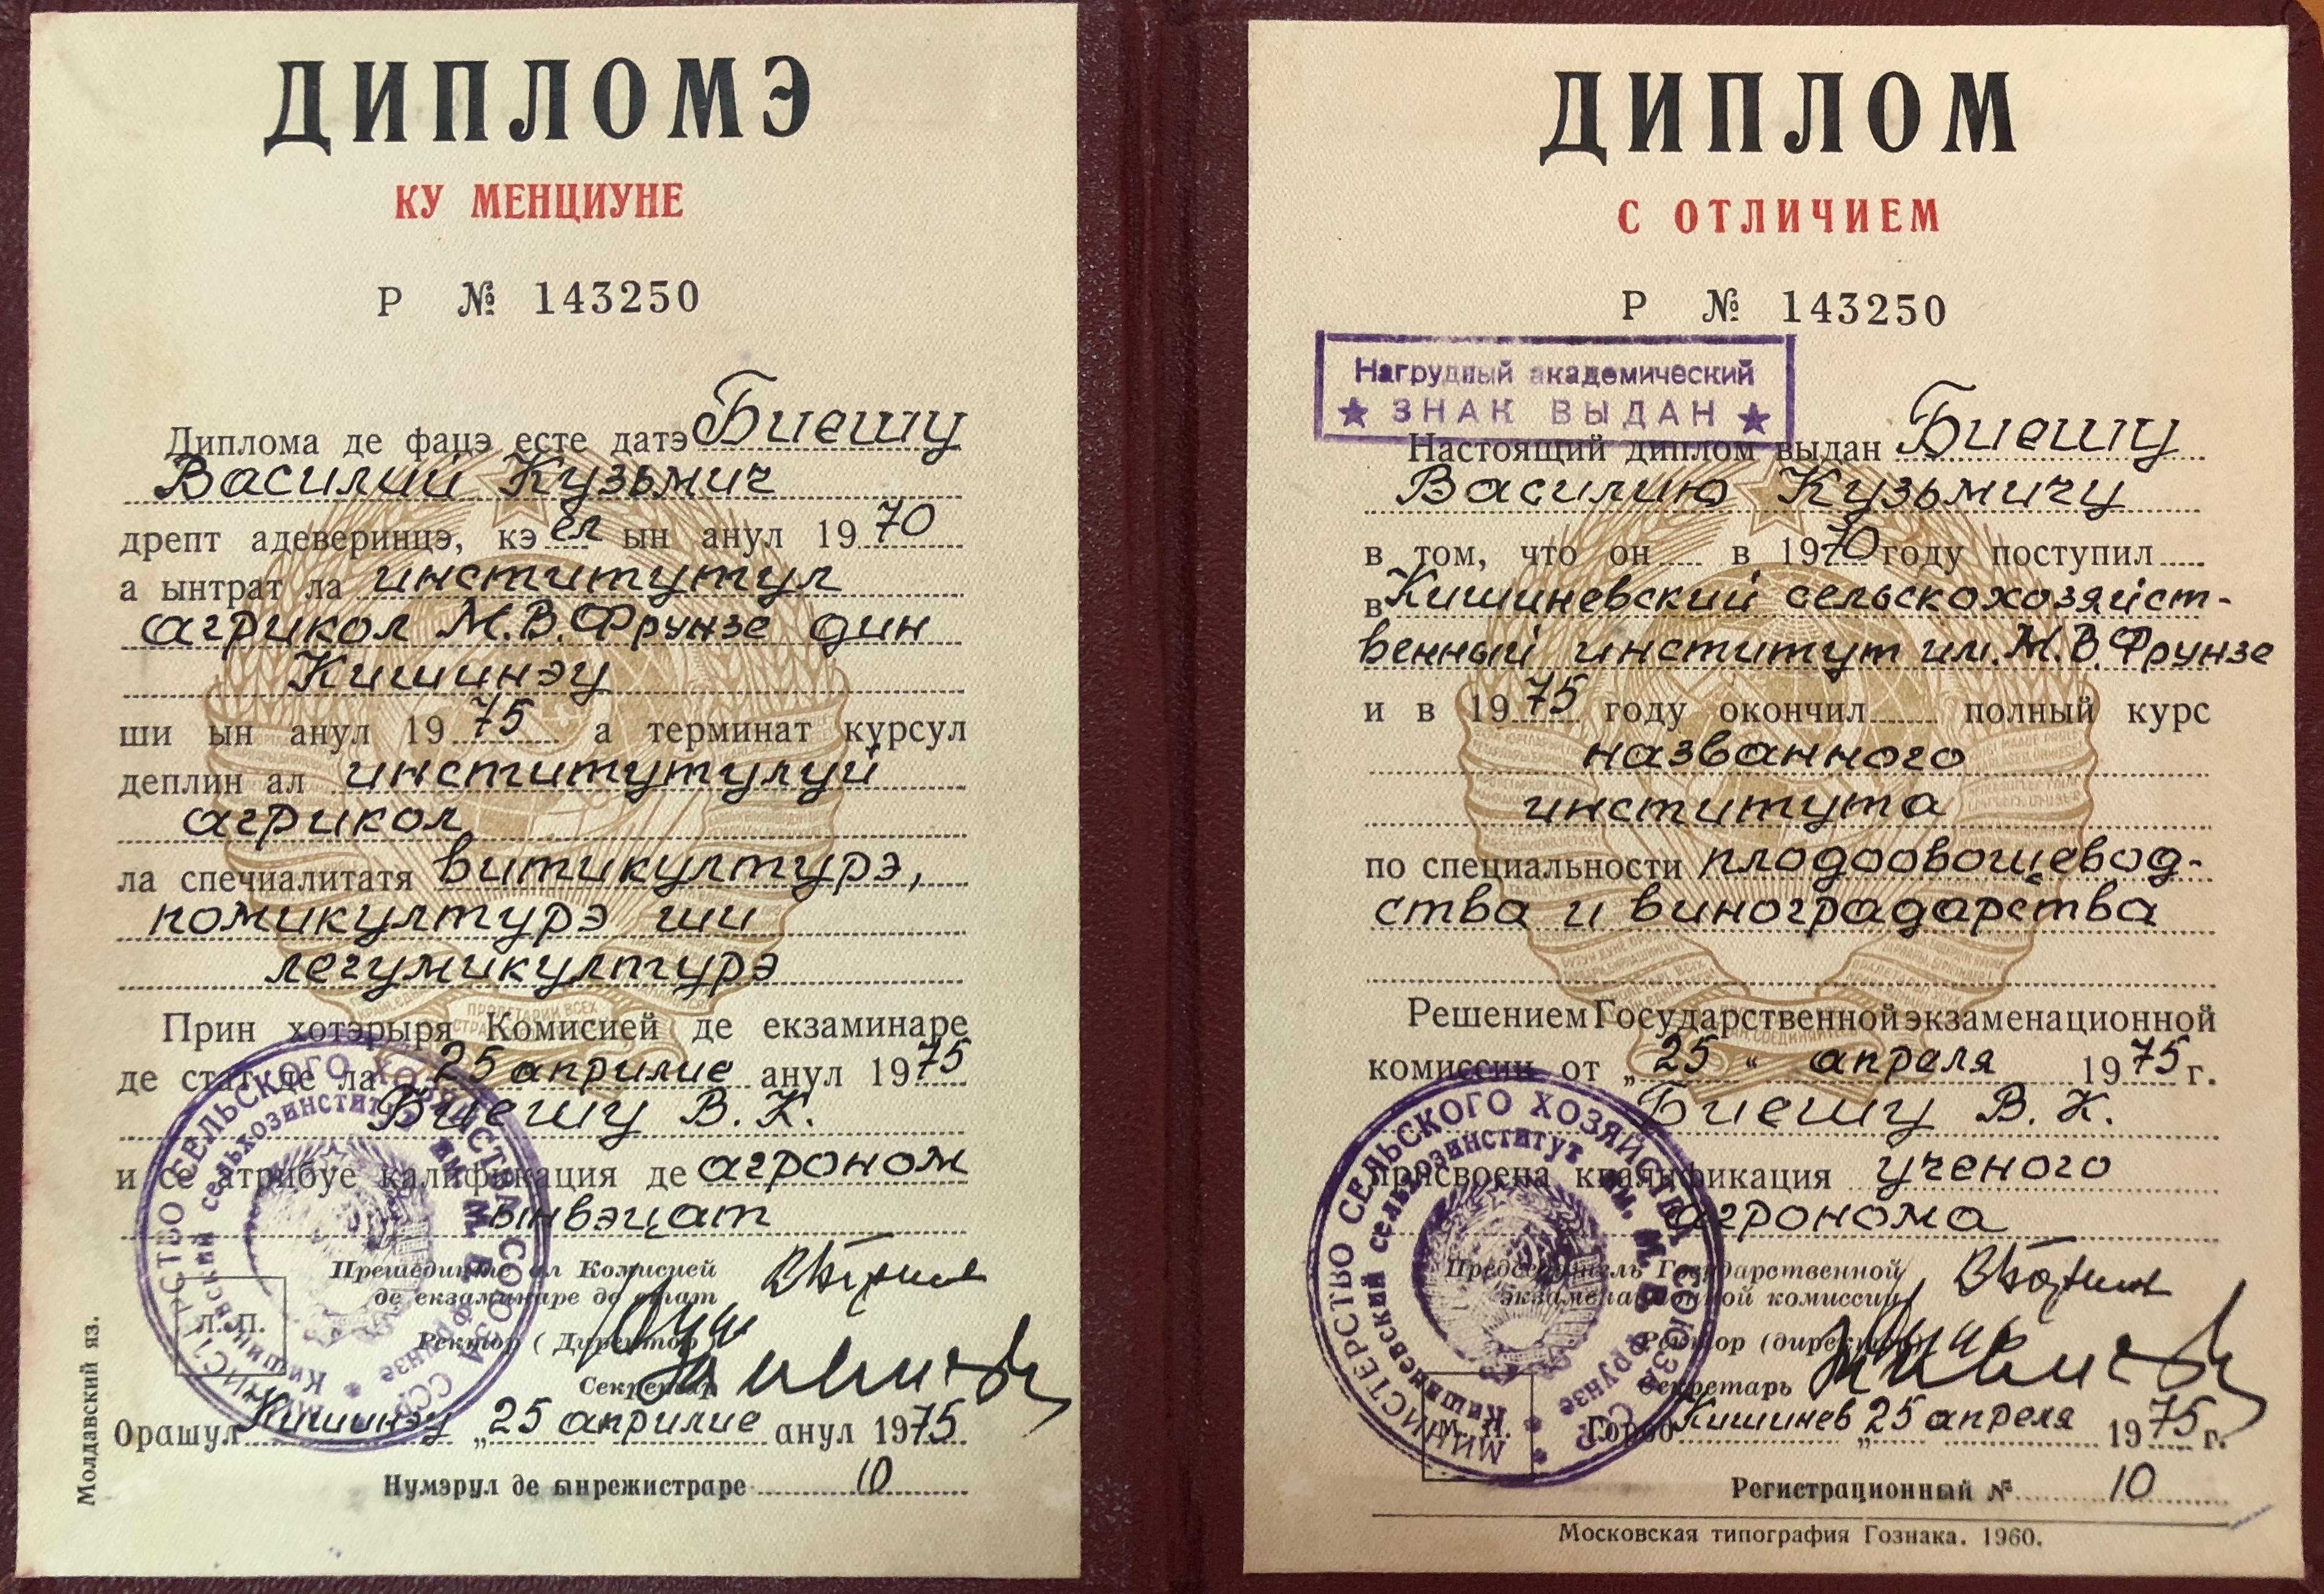 ДИПЛОМЭ
КУ МЕНЦИУНЕ
Р № 143250
Диплома де фацэ есте датэ Биешу
Василий Кузьмич
дрепт адеверинцэ, кэ ел ын анул 1970
а ынтрат ла институтул
агрикол М.В.Фрунзе дин
Кишинэу
ши ын анул 1975 а терминат курсул
деплин ал институтулуй
агрикол
ла спечиалитатя витикултурэ,
помикултурэ ши
легумикултурэ
Прин хотэрыря Комисией де екзаминаре
де стат де ла 25 априлие анул 1975
Биешу В. К.
и се атрибуе калификация де агроном
ынвэцат
Прешединте ал Комисией
де екзаминаре де стат
Ректор (Директор)
Секретар
Л. П.
Орашул Кишинэу „25 априлие анул 1975
Нумэрул де ынрежистраре 10
Молдавский яз.
МИНИСТЕРСТВО СЕЛЬСКОГО ХОЗЯЙСТВА СОЮЗА ССР
Кишиневский сельхозинститут им. М. В. Фрунзе
ДИПЛОМ
С ОТЛИЧИЕМ
Р № 143250
Нагрудный академический
★ ЗНАК ВЫДАН ★
Настоящий диплом выдан Биешу
Василию Кузьмичу
в том, что он в 1970 году поступил
в Кишиневский сельскохозяйст-
венный институт им. М.В.Фрунзе
и в 1975 году окончил полный курс
названного
института
по специальности плодоовощевод-
ства и виноградарства
Решением Государственной экзаменационной
комиссии от „25“ апреля 1975 г.
Биешу В. К.
присвоена квалификация ученого
агронома
Председатель Государственной
экзаменационной комиссии
Ректор (директор)
Секретарь
М. П.
Город Кишинев „25 апреля 1975 г.
Регистрационный № 10
Московская типография Гознака. 1960.
МИНИСТЕРСТВО СЕЛЬСКОГО ХОЗЯЙСТВА СОЮЗА ССР
Кишиневский сельхозинститут им. М. В. Фрунзе